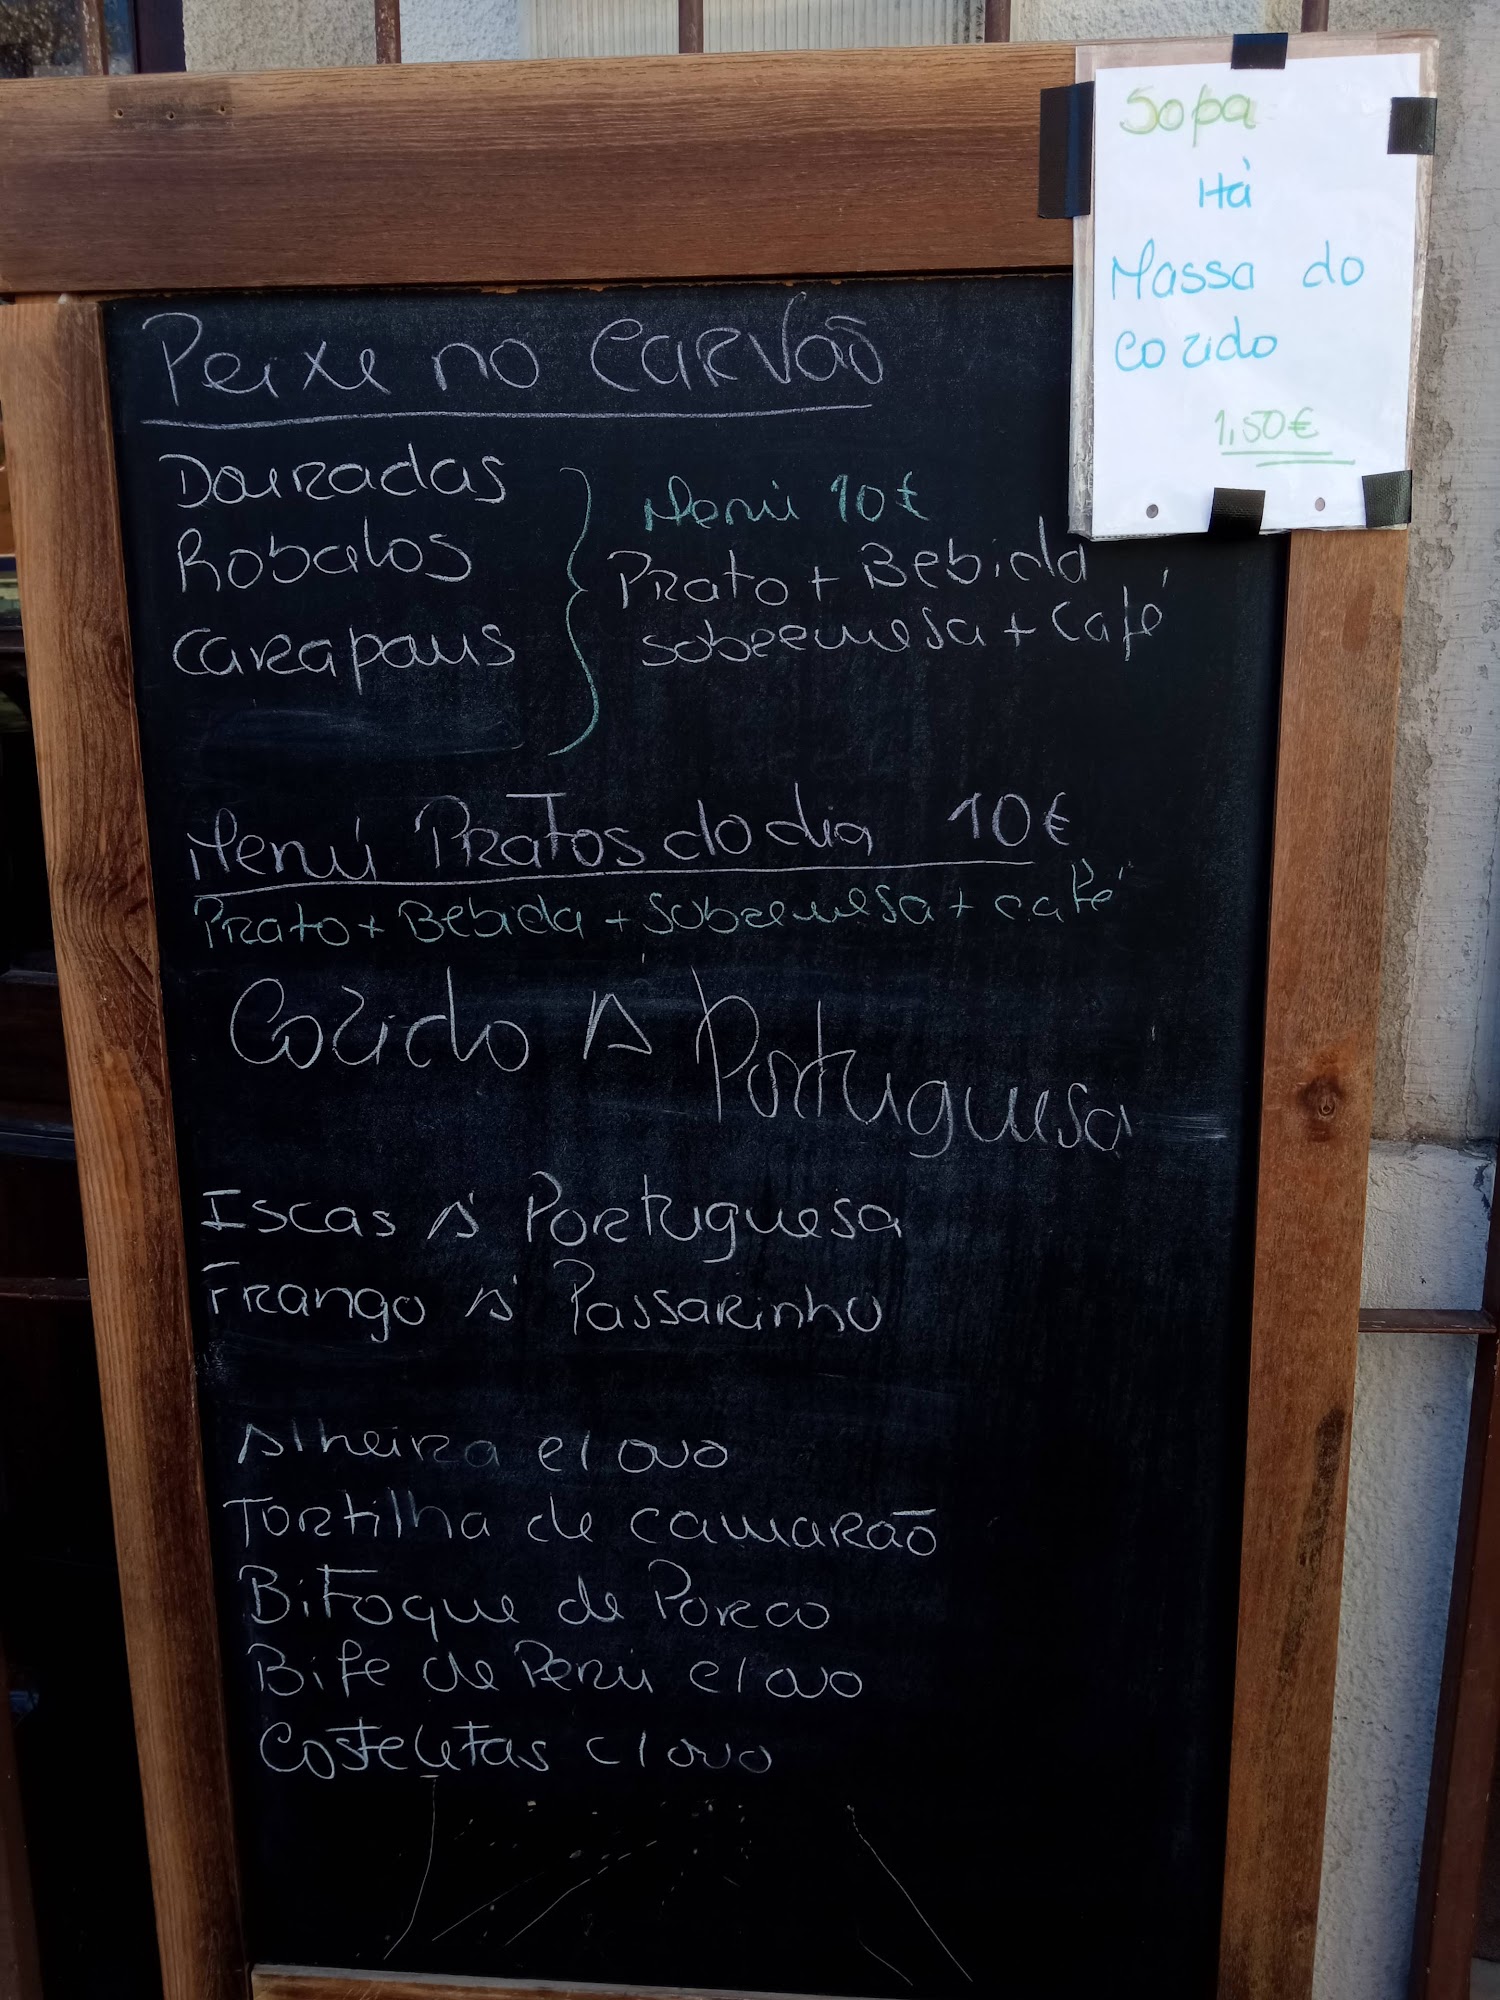 Sopa
Há
Massa do
Cozido
1,50€
Peixe no Carvão
Douradas
Robalos
Carapaus
Menú 10€
Prato + Bebida
Sobremesa + Café
Menú Pratos do dia 10€
Prato + Bebida + Sobremesa + café
Cozido À Portuguesa
Iscas À Portuguesa
Frango À Passarinho
Alheira c/ ovo
Tortilha de camarão
Bitoque de Porco
Bife de Perú c/ ovo
Costeletas c/ ovo